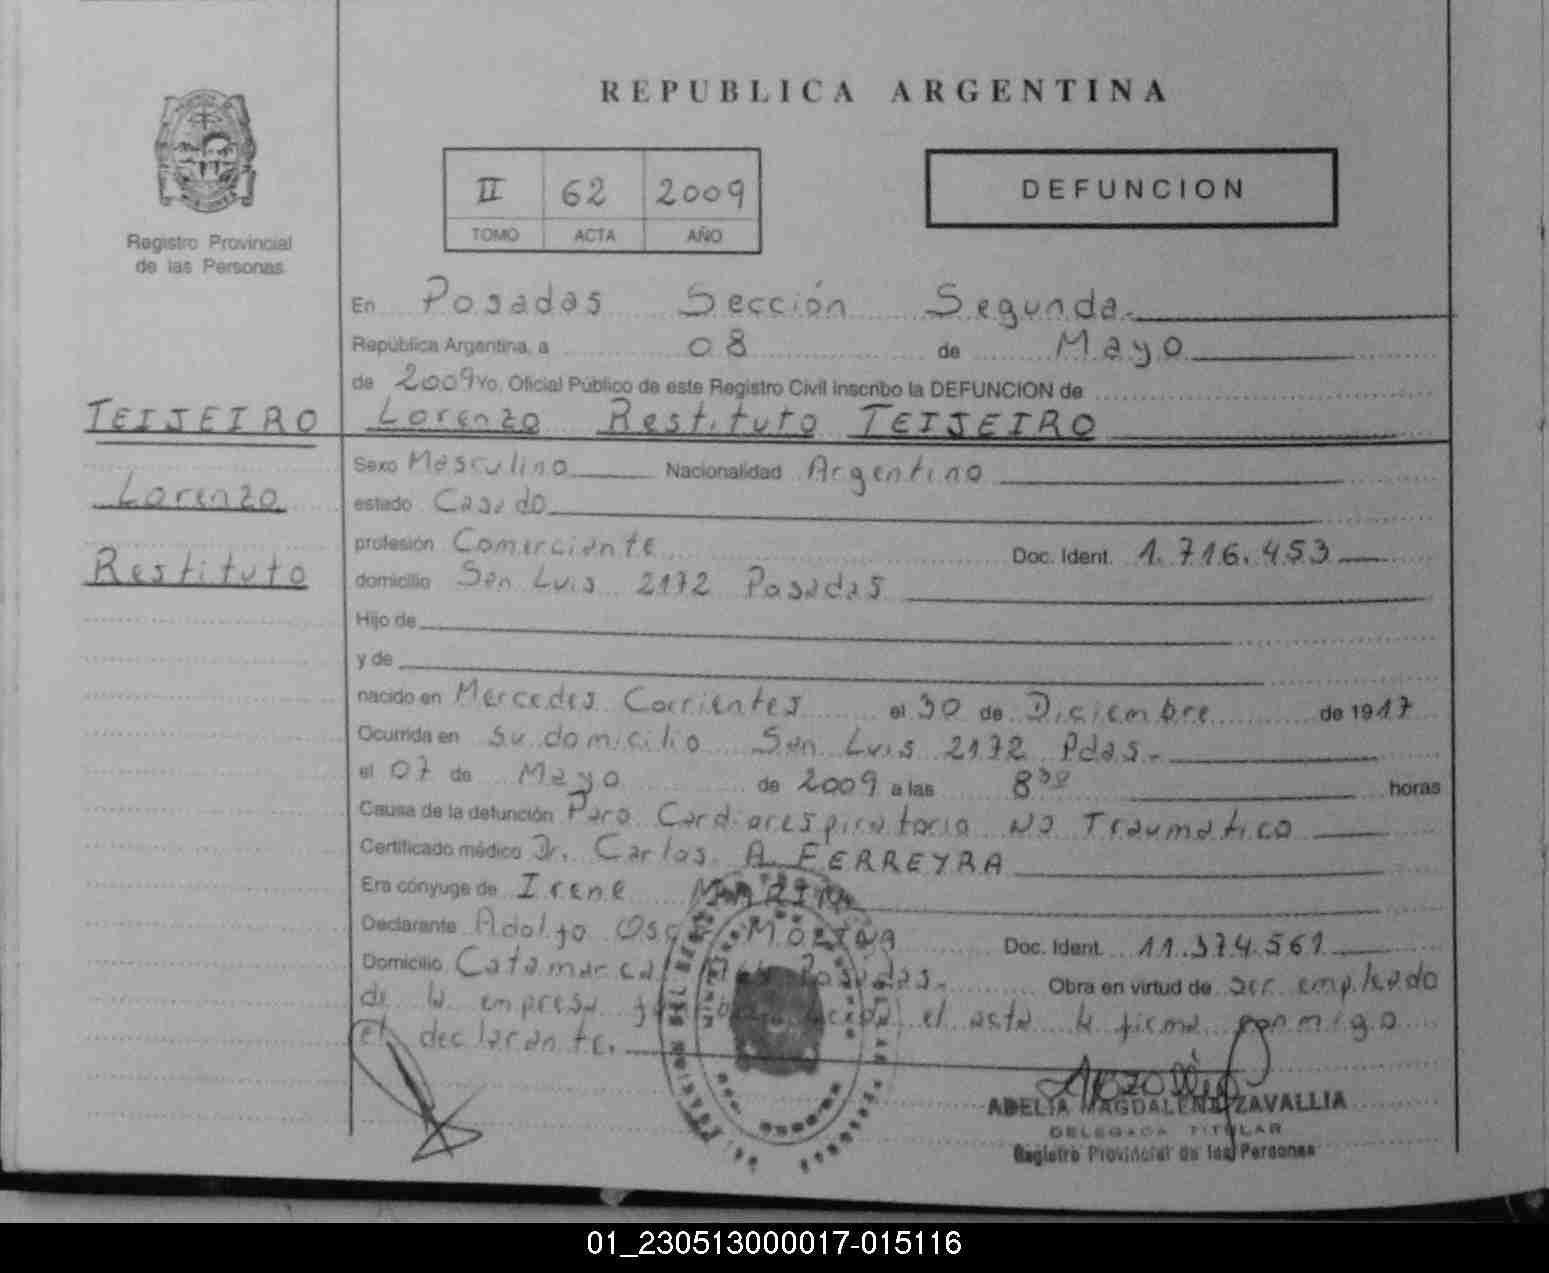 REPUBLICA ARGENTINA
Registro Provincial
de las Personas
II 62 2009
TOMO ACTA AÑO
DEFUNCION
En Posadas Sección Segunda.
República Argentina, a 08 de Mayo
de 2009 Yo, Oficial Público de este Registro Civil inscribo la DEFUNCION de
TEIJEIRO Lorenzo Restituto TEIJEIRO
Sexo Masculino Nacionalidad Argentino
Lorenzo
estado Casado
profesión Comerciante Doc. Ident. 1.716.453
Restituto
domicilio San Luis 2172 Posadas
Hijo de
y de
nacido en Mercedes Corrientes el 30 de Diciembre de 1917
Ocurrida en su domicilio San Luis 2172 Pdas.
el 07 de Mayo de 2009 a las 8³⁰ horas
Causa de la defunción Paro Cardiorespiratorio No Traumatico
Certificado médico Dr. Carlos A. FERREYRA
Era cónyuge de Irene
Declarante Adolfo Doc. Ident. 11.374.561
Domicilio Catamarca Posadas. Obra en virtud de ser empleado
de la empresa el acta la firma conmigo
El declarante.
ADELIA MAGDALENA ZAVALLIA
DELEGADA TITULAR
Registro Provincial de las Personas
01_230513000017-015116